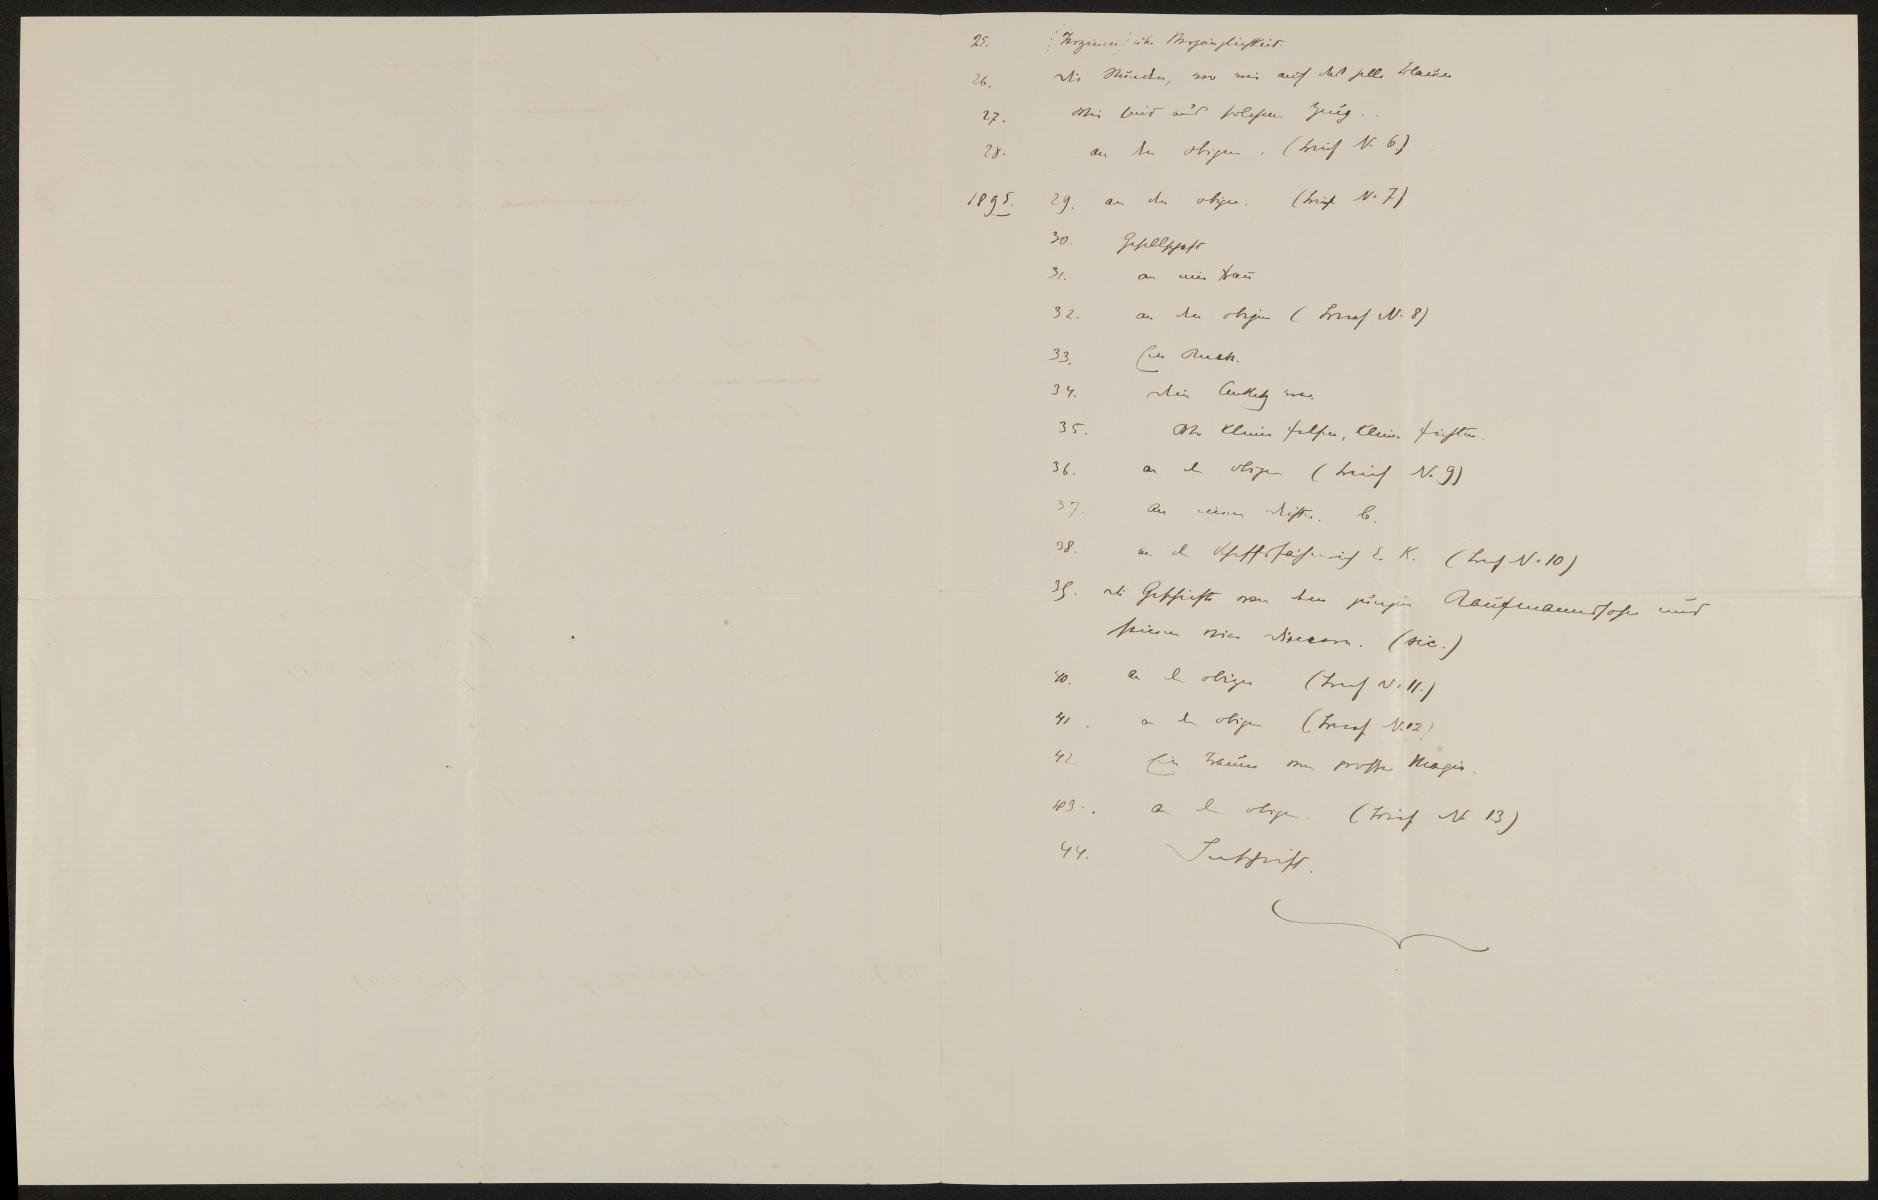 25. (Terzinen) über Vergänglichkeit.
26. Die Stunden, wo wir auf das helle Blauen
27. Wir sind aus solchem Zeug..
28. an den obigen. (Brief N. 6.)
1895. 29. an den obigen. (Brief N. 7)
30. Gesellschaft
31. an eine Frau
32. an den obigen (Brief N. 8)
33. Ein Knab.
34. Dein Antlitz war.
35. Wo kleine Felsen, kleine Fichten.
36. an den obigen (Brief N. 9)
37. An einen Dichter. C.
38. an den Schiffsfähnrich E. K. (Brief N. 10)
39. die Geschichte von dem jungen Kaufmannssohn und
seinen vier Dienern. (sic.)
40. an den obigen (Brief N. 11.)
41. an den obigen (Brief N. 12)
42. Ein Traum von großer Magie.
43. an den obigen. (Brief N 13)
44. Inschrift.